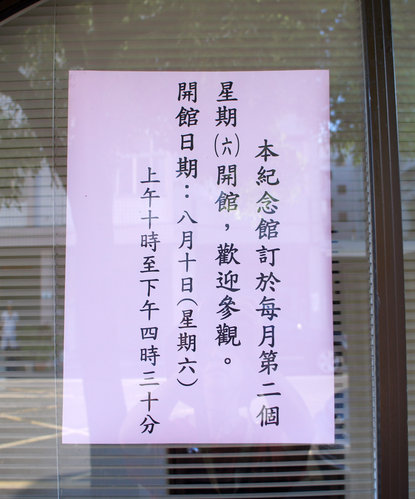 本紀念館訂於每月第二個
星期(六)開館，歡迎參觀。
開館日期：八月十日(星期六)
上午十時至下午四時三十分